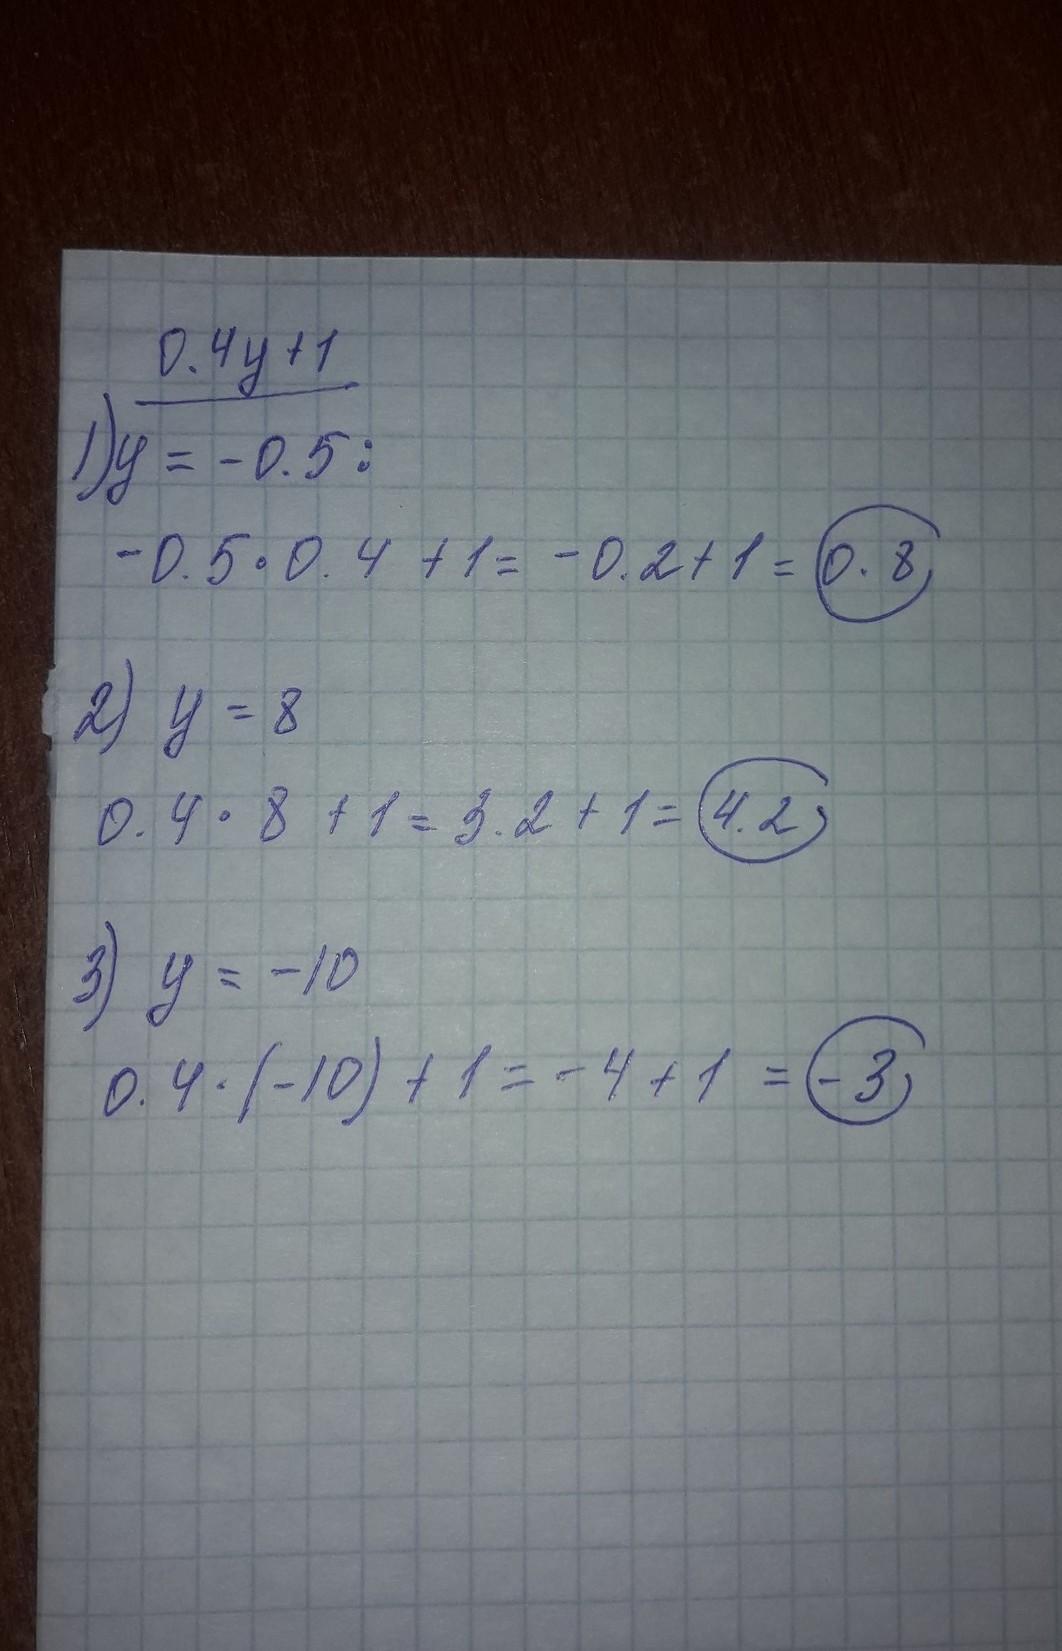 0.4y+1
1) y = -0.5:
-0.5·0.4 +1= -0.2+1= 0.8;
2) y = 8
0.4·8 +1= 3.2+1= 4.2;
3) y = -10
0.4·(-10)+1= -4+1 = -3;